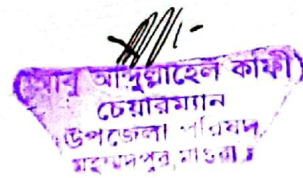 (আবু আব্দুল্লাহেল কাফী)
চেয়ারম্যান
উপজেলা পরিষদ,
মহম্মদপুর, মাগুরা।